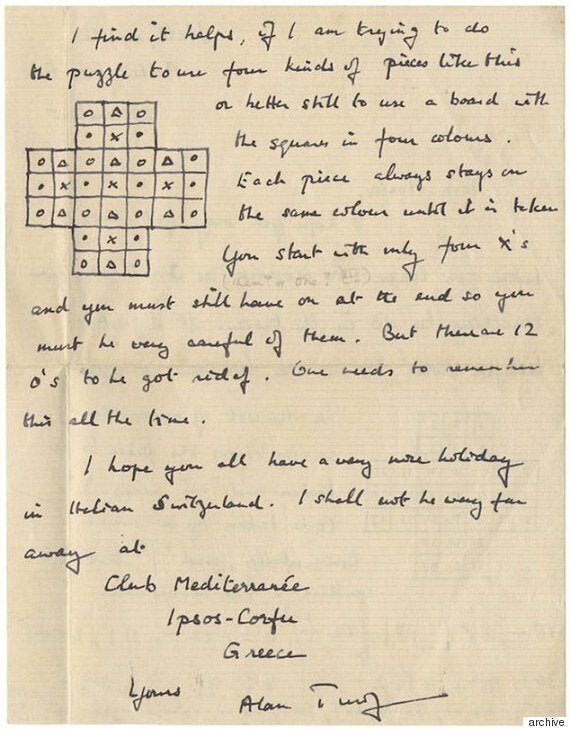 I find it helps, if I am trying to do
the puzzle to use four kinds of pieces like this
or better still to use a board with
the squares in four colours.
Each piece always stays on
the same colour until it is taken
You start with only four x's
O Δ O
• x •
O Δ O Δ O Δ O
• x • x • x •
O Δ O Δ O Δ O
• x •
O Δ O
and you must still have on at the end so you
must be very careful of them. But there are 12
O's to be got rid of. One needs to remember
this all the time.
I hope you all have a very nice holiday
in Italian Switzerland. I shall not be very far
away at
Club Mediterranée
Ipsos-Corfu
Greece
Yours Alan Turing
archive